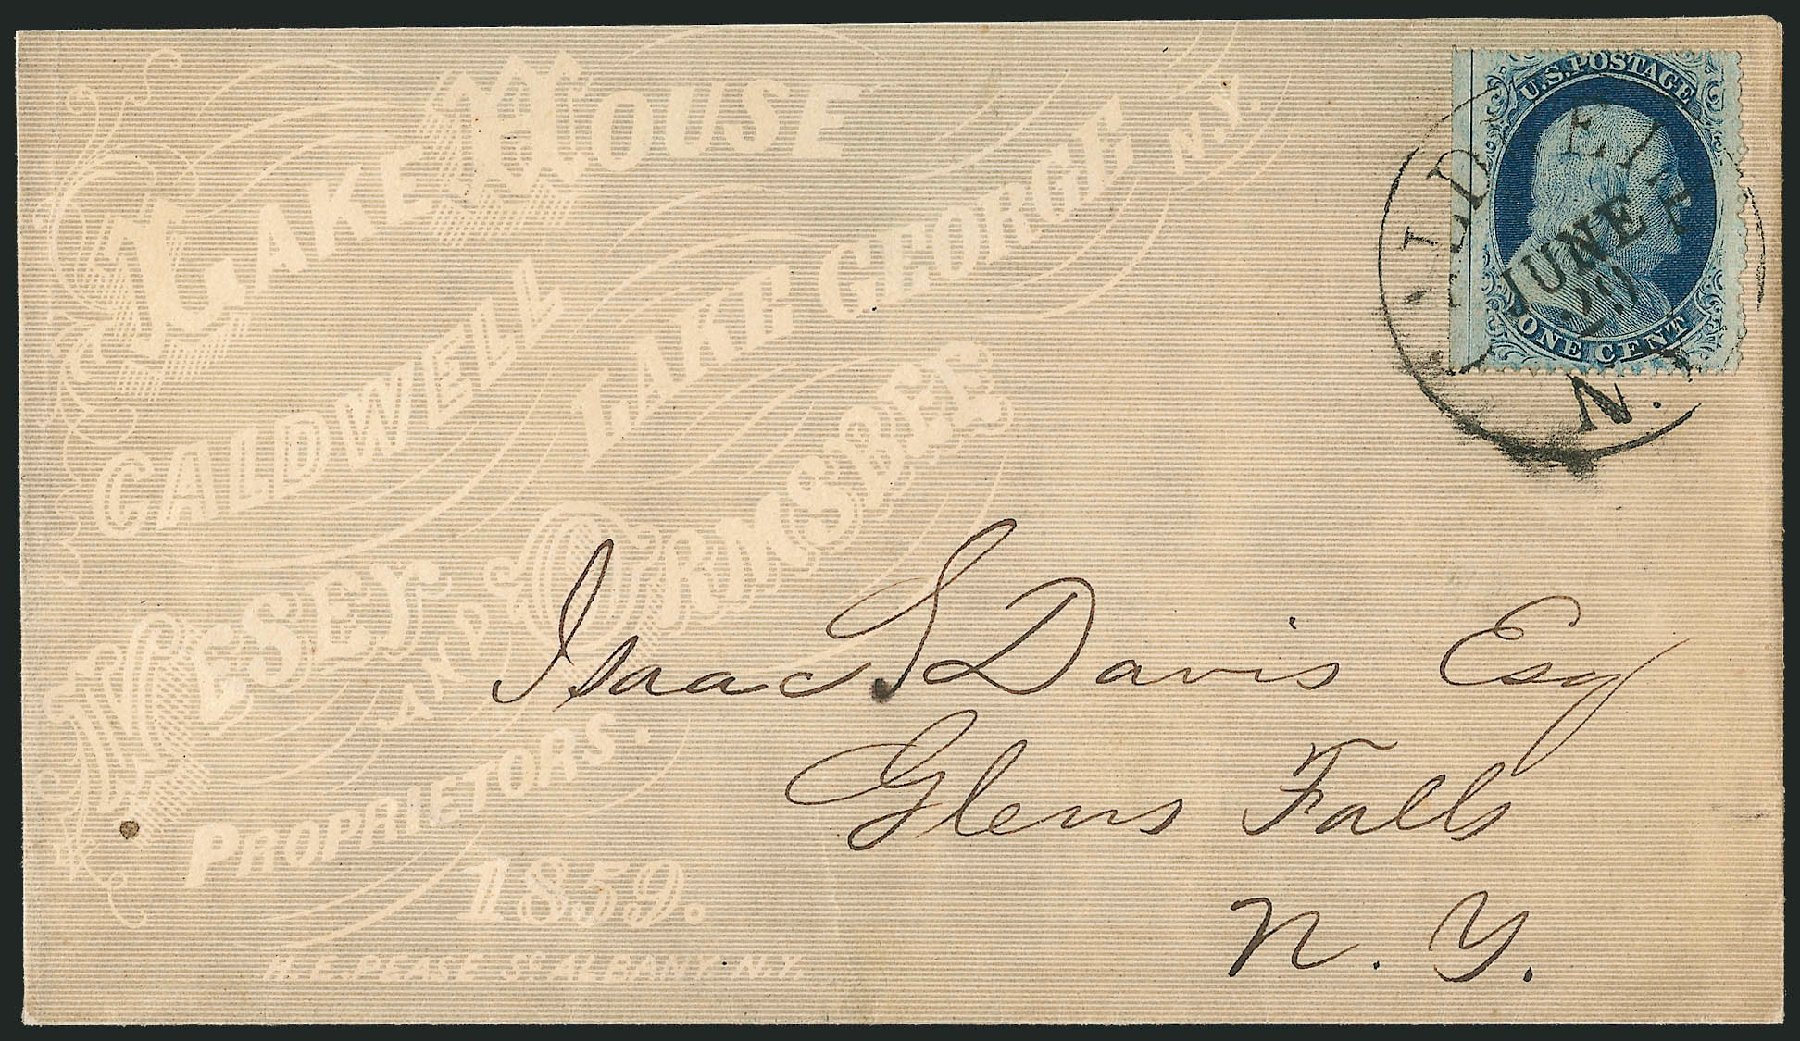 LAKE HOUSE
CALDWELL
LAKE GEORGE N.Y.
VESEY AND ORMSBEE
PROPRIETORS.
1859.
R.E. PEASE SC ALBANY N.Y.
U.S. POSTAGE
ONE CENT
JUNE
N.Y
Isaac S Davis Esq
Glens Falls
N. Y.